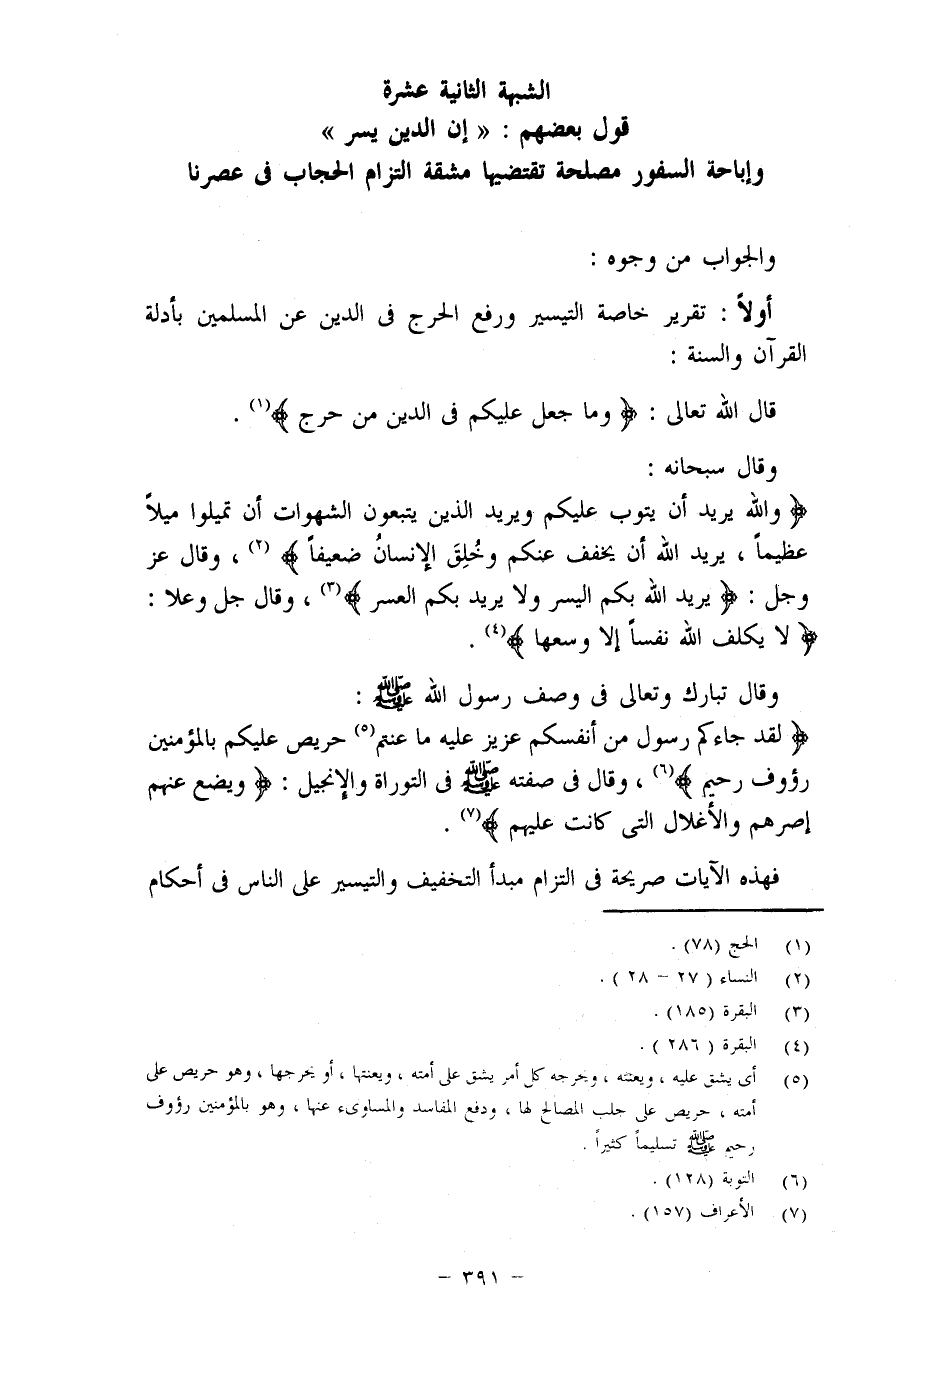 الشبهة الثانية عشرة
قول بعضهم : « إن الدين يسر »
وإباحة السفور مصلحة تقتضيها مشقة التزام الحجاب فى عصرنا
والجواب من وجوه :
أولاً : تقرير خاصة التيسير ورفع الحرج فى الدين عن المسلمين بأدلة
القرآن والسنة :
قال الله تعالى : ﴿ وما جعل عليكم فى الدين من حرج ﴾(١) .
وقال سبحانه :
﴿ والله يريد أن يتوب عليكم ويريد الذين يتبعون الشهوات أن تميلوا ميلاً
عظيماً ، يريد الله أن يخفف عنكم وخُلِقَ الإنسانُ ضعيفاً ﴾ (٢) ، وقال عز
وجل : ﴿ يريد الله بكم اليسر ولا يريد بكم العسر ﴾(٣) ، وقال جل وعلا :
﴿ لا يكلف الله نفساً إلا وسعها ﴾(٤) .
وقال تبارك وتعالى فى وصف رسول الله ﷺ :
﴿ لقد جاءكم رسول من أنفسكم عزيز عليه ما عنتم(٥) حريص عليكم بالمؤمنين
رؤوف رحيم ﴾(٦) ، وقال فى صفته ﷺ فى التوراة والإنجيل : ﴿ ويضع عنهم
إصرهم والأغلال التى كانت عليهم ﴾(٧) .
فهذه الآيات صريحة فى التزام مبدأ التخفيف والتيسير على الناس فى أحكام
(١) الحج (٧٨) .
(٢) النساء ( ٢٧ – ٢٨ ) .
(٣) البقرة (١٨٥) .
(٤) البقرة ( ٢٨٦ ) .
(٥) أى يشق عليه ، ويعنته ، ويحرجه كل أمر يشق على أمته ، ويعنتها ، أو يحرجها ، وهو حريص على
أمته ، حريص على جلب المصالح لها ، ودفع المفاسد والمساوىء عنها ، وهو بالمؤمنين رؤوف
رحيم ﷺ تسليماً كثيراً .
(٦) التوبة (١٢٨) .
(٧) الأعراف (١٥٧) .
– ٣٩١ –